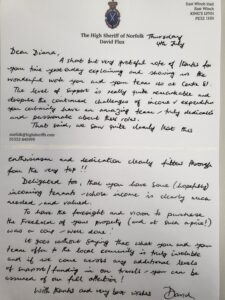 East Winch Hall
East Winch
KING'S LYNN
PE32 1HN
The High Sheriff of Norfolk
David Flux
Thursday
4th July
Dear Diana,
A short but very grateful note of thanks for
your time yesterday explaining and showing us the
wonderful work you and your team do at
The level of support is really quite remarkable and
despite the continued challenges of income & expenditure
you certainly have an amazing team - truly dedicated
and passionate about their roles.
That said, we saw quite clearly that this
norfolk@highsheriffs.com
enthusiasm and dedication clearly filters through
from the very top!!
Delighted too, that you have some (hopefully)
incoming tenants whose income is clearly much
needed, and valued.
To have the foresight and vision to purchase
the freehold of your property (and at such a price!)
was a coup - well done!
It goes without saying that what you and your
team offer to the local community is truly invaluable
and if we come across any additional levels
of support/funding in our travels - you can be
assured of our full attention!
With thanks and very best wishes
David